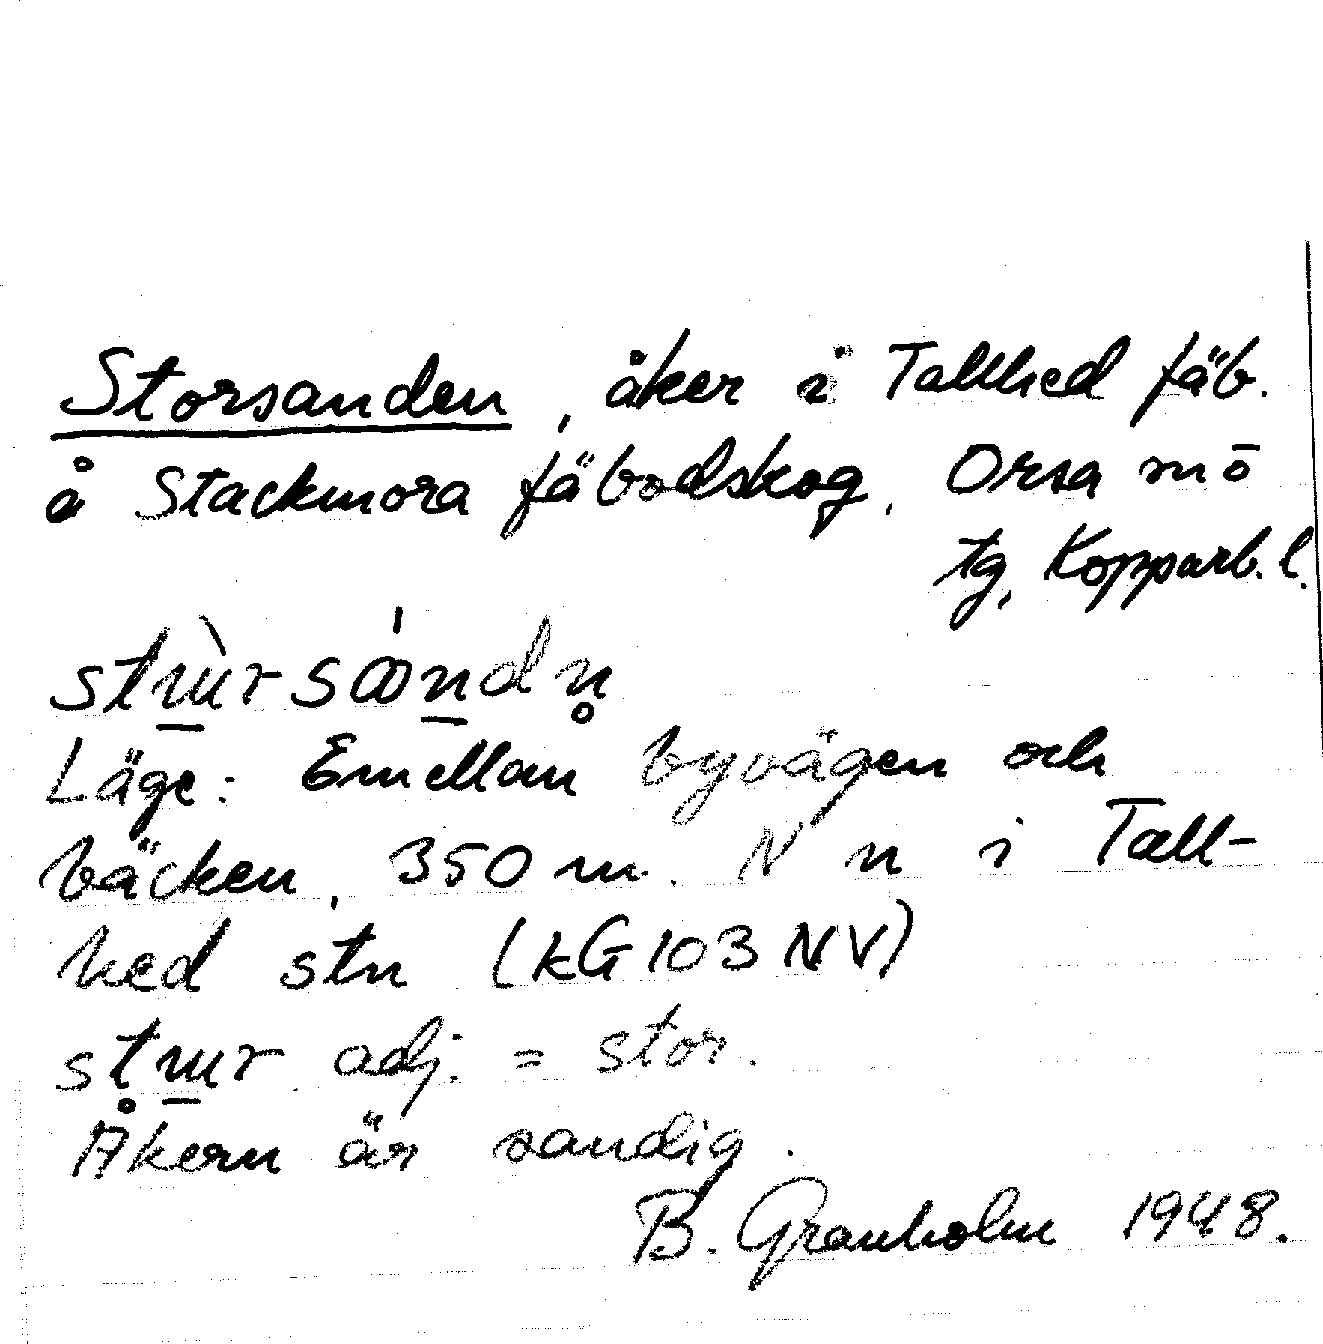 Storsanden, åker i Tallhed fäb.
å Stackmora fäbodskog, Orsa mō
tg, Kopparb. l.
Läge: Emellan byvägen och
bäcken, 350 m. N n i Tall-
hed stn (kG 103 NV)
adj. = stor.
Åkern är sandig.
B. Granholm 1948.